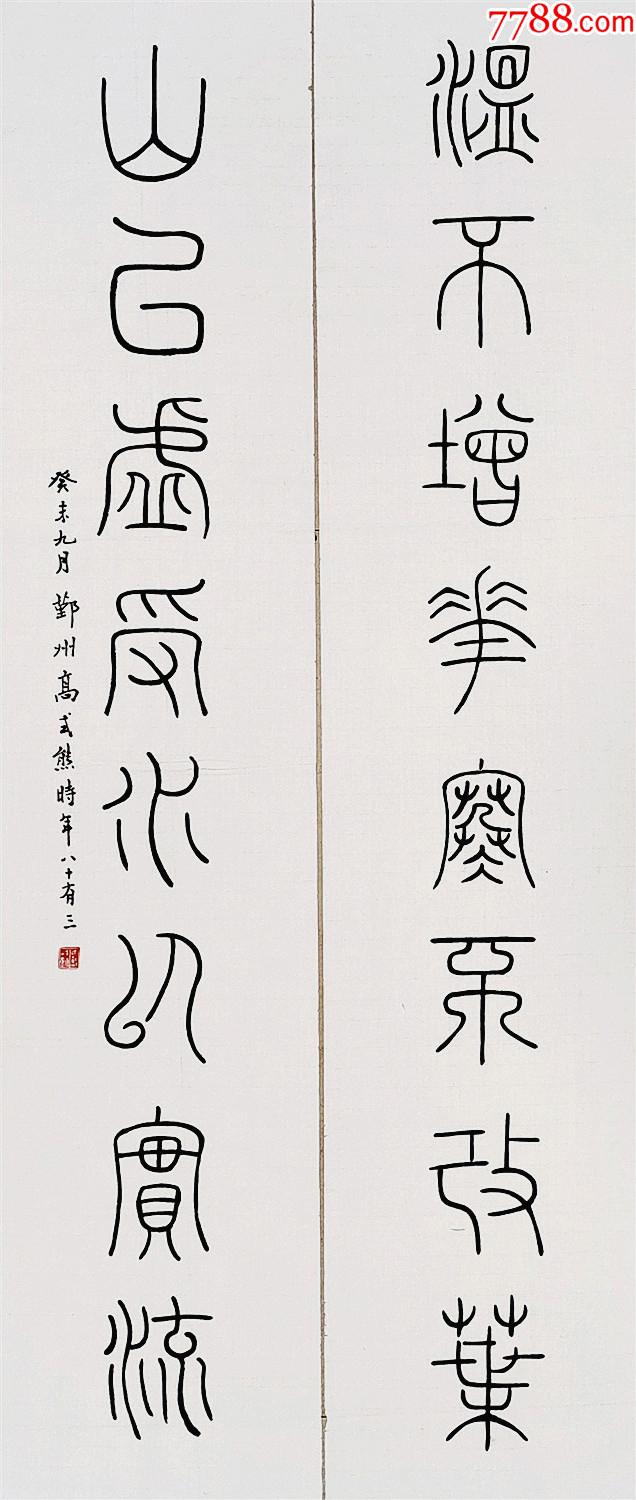 7788.com
溫不增華寒不改葉
山以虛受水以實流
癸未九月鄞州高式熊時年八十有三